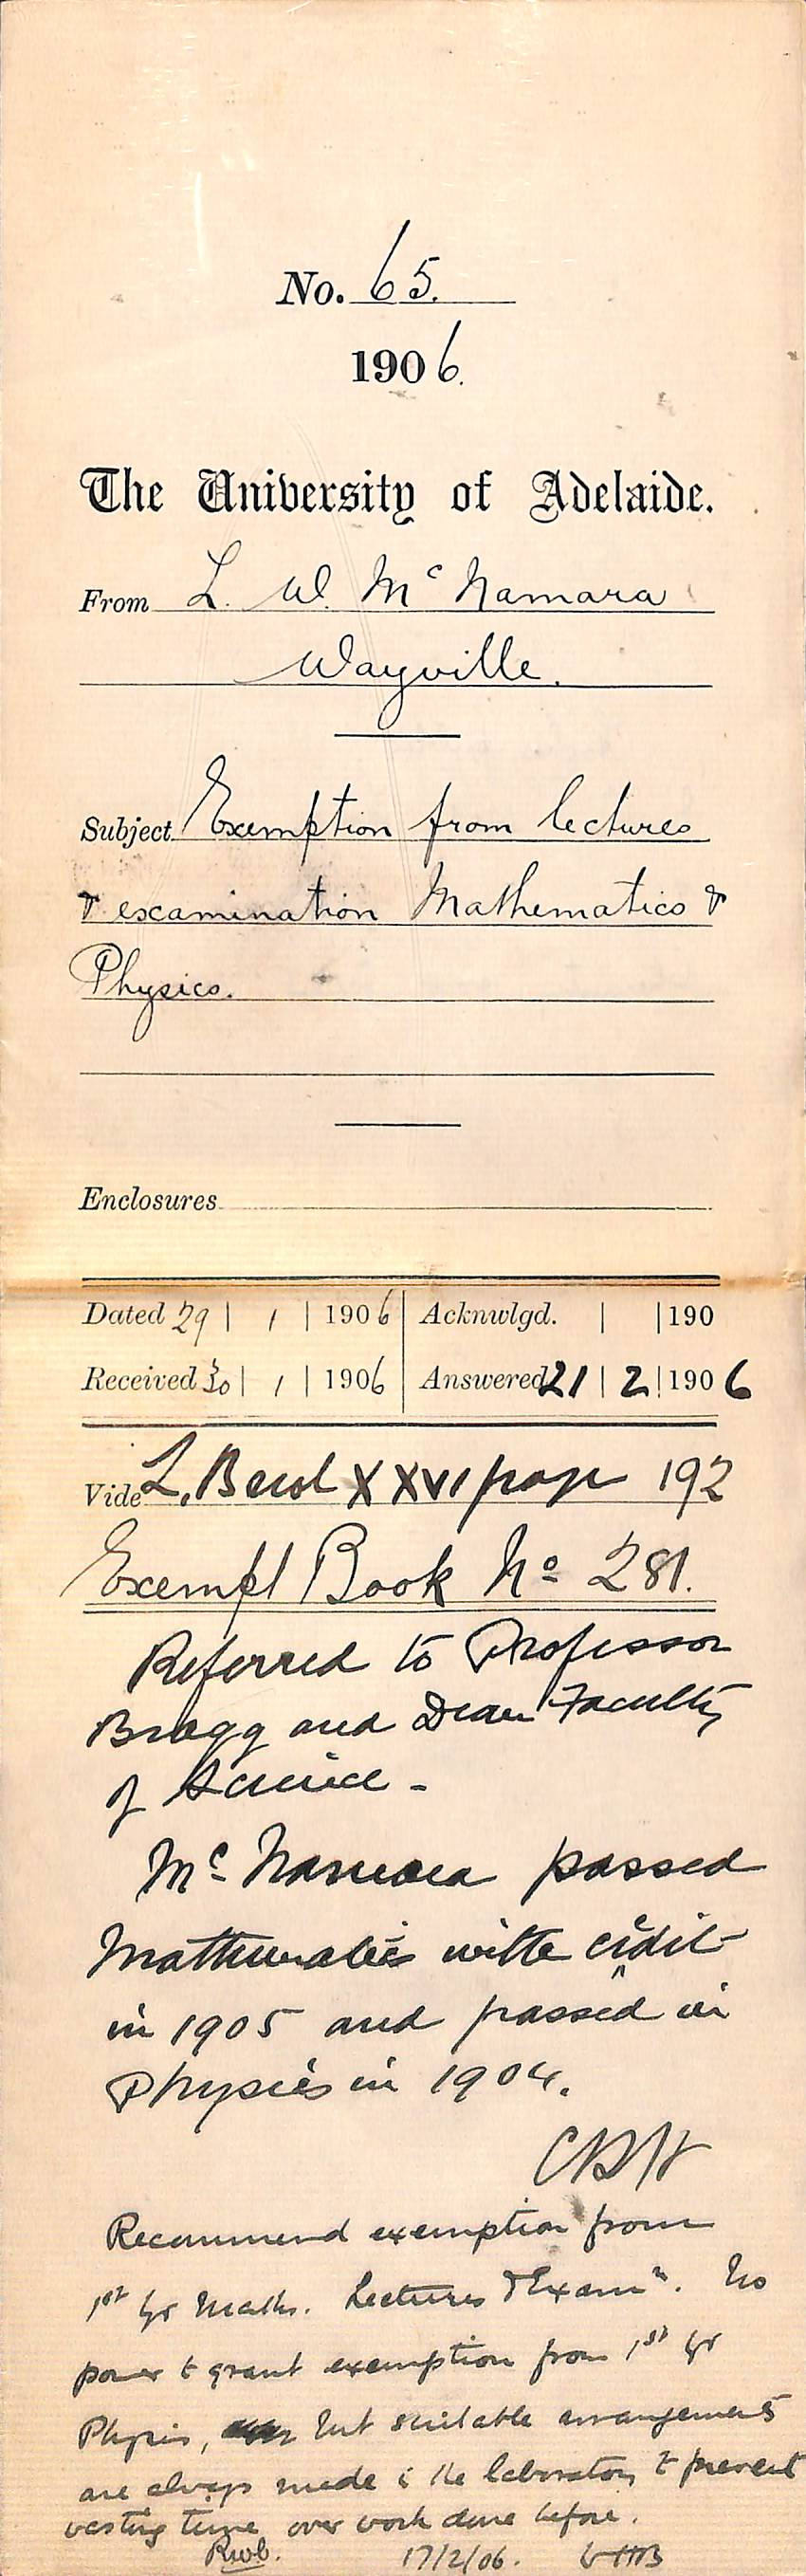 No. 65.
1906.
The University of Adelaide.
From L. W. Mc Namara
Wayville.
Subject Exemption from lectures
& examination Mathematics &
Physics.
Enclosures
Dated 29 | 1 | 1906 Acknwlgd. | | 190
Received 30 | 1 | 1906 Answered 21 | 2 | 1906
Vide L. Book XXVI page 192
Exempt Book No 281.
Referred to Professor
Bragg and Dean Faculty
of Science -
Mc Namara passed
Mathematics with credit
in 1905 and passed in
Physics in 1904.
Recommend exemption from
1st yr Maths. Lectures & Examn. No
power to grant exemption from 1st yr
Physics, but suitable arrangements
are always made in the laboratory to prevent
wasting time over work done before.
17/2/06. WHB